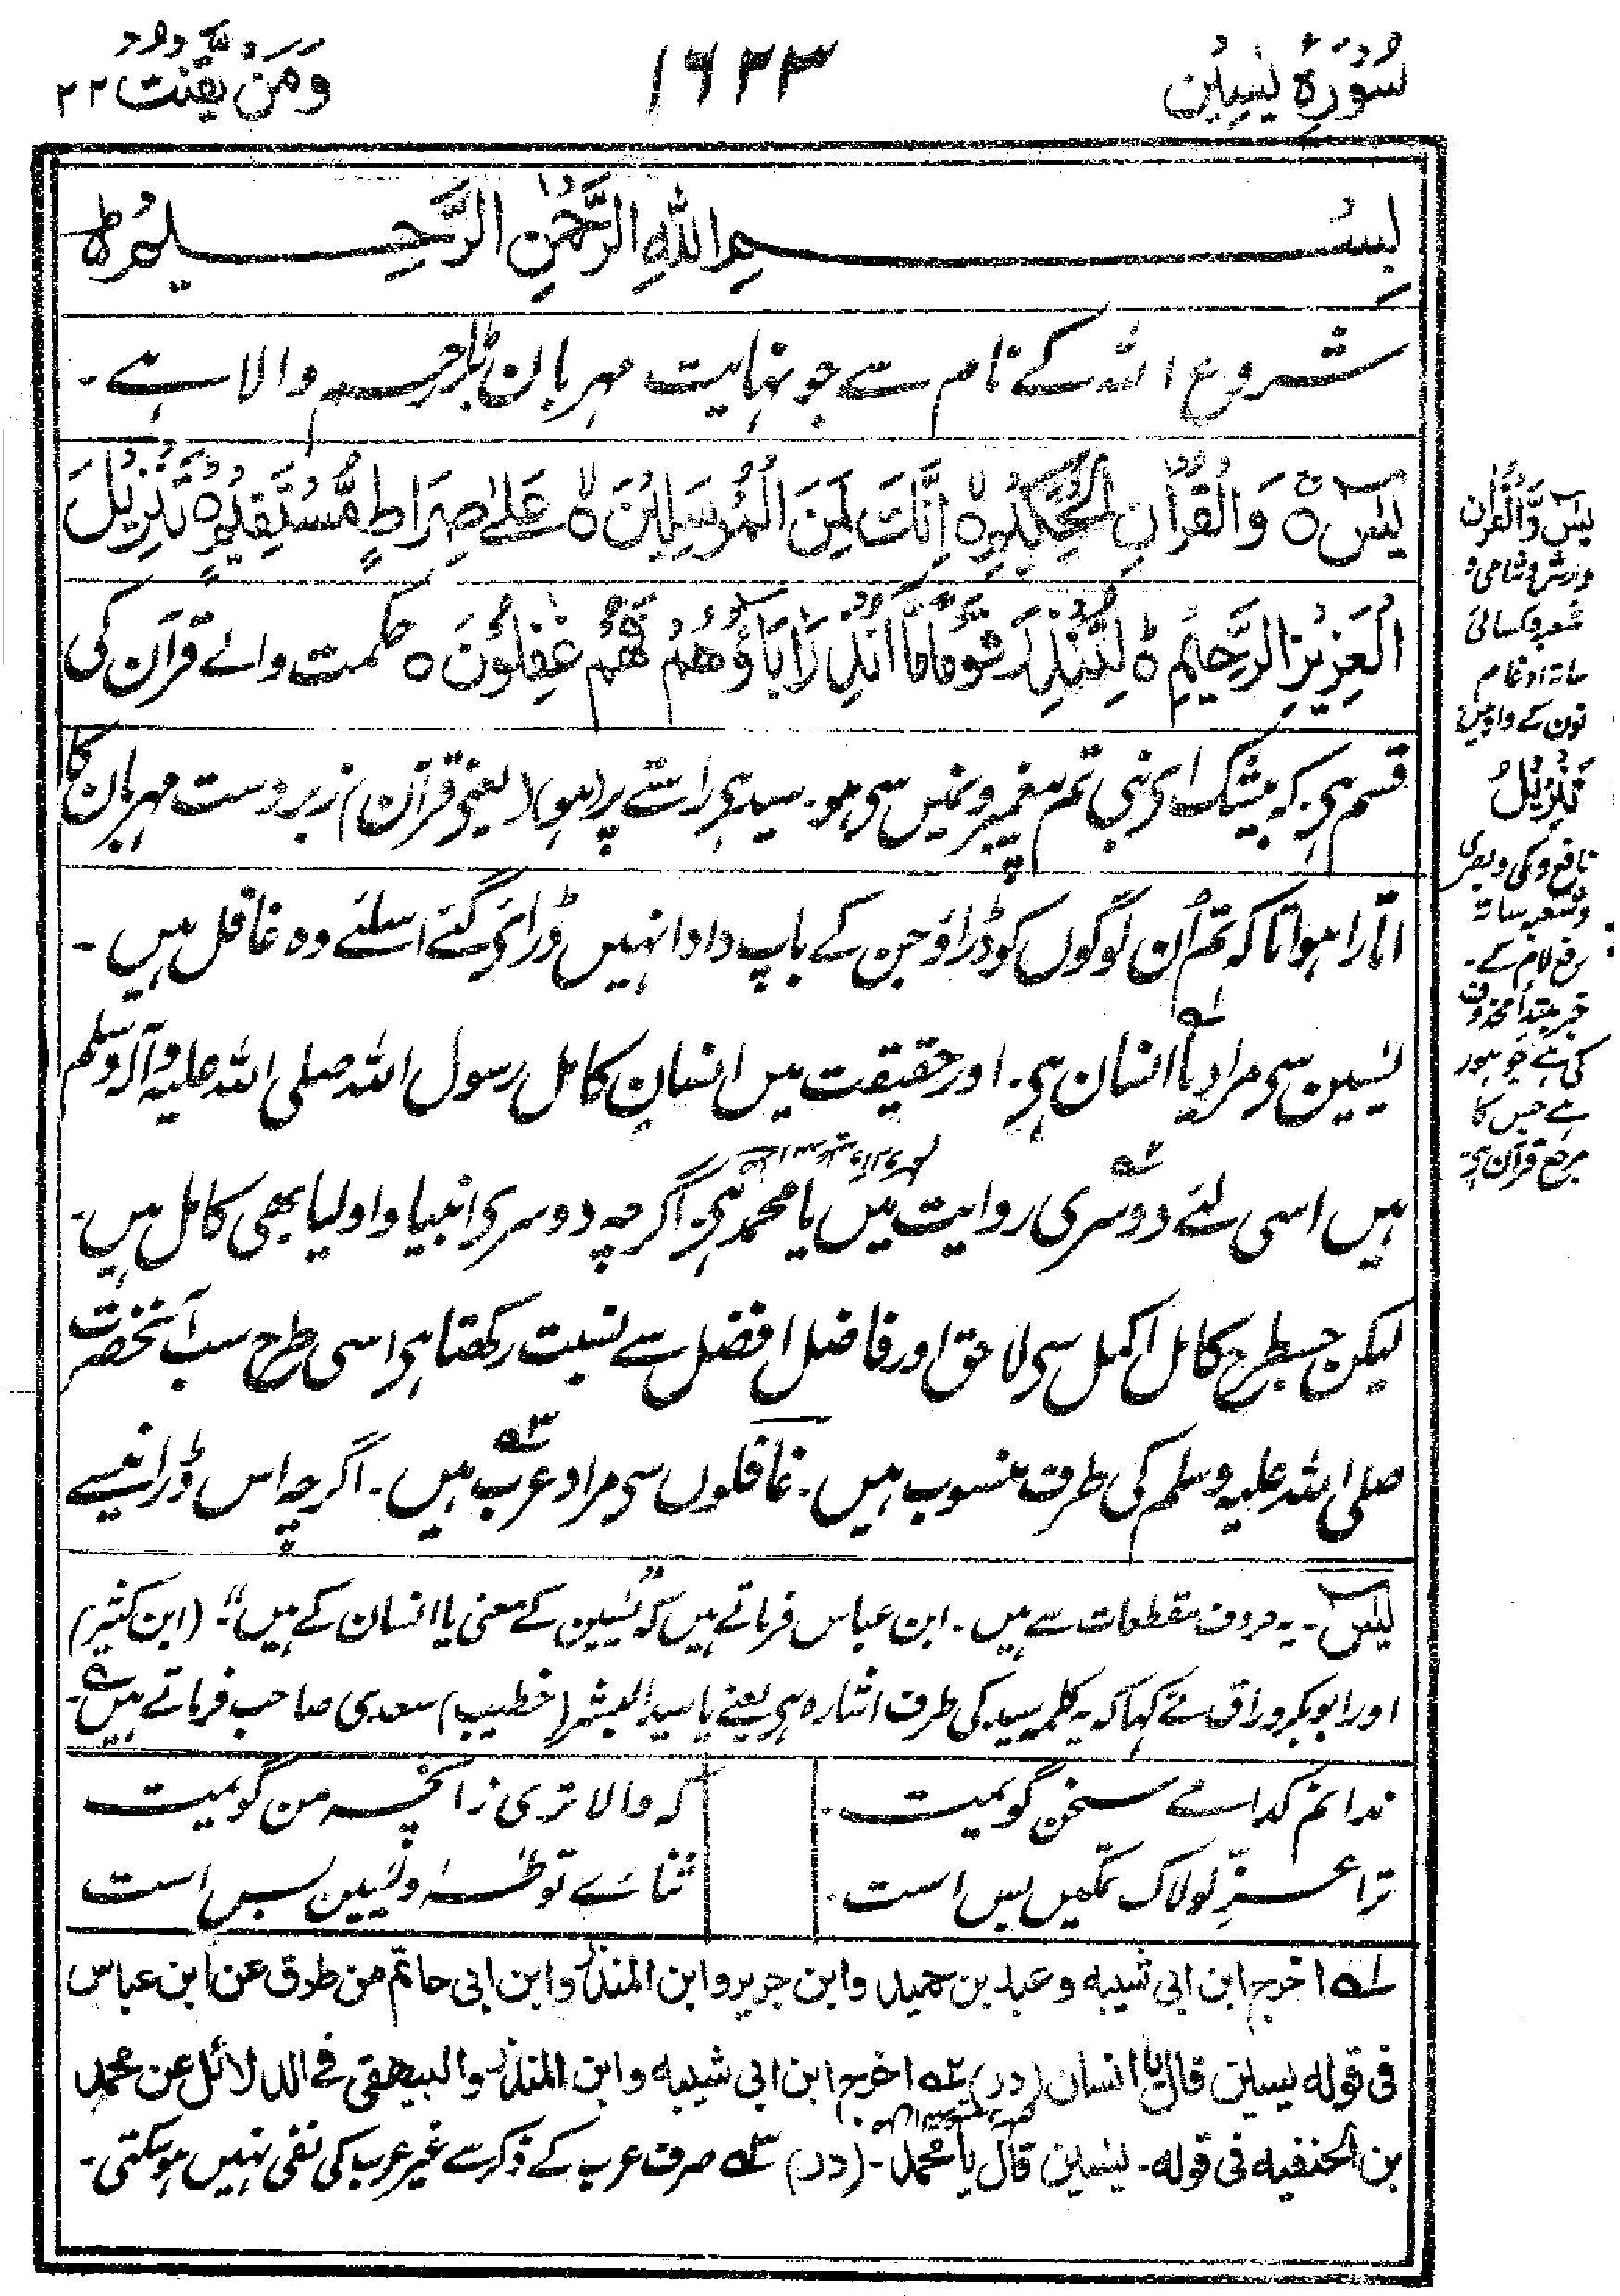 سُوْرَةُ يٰسِيْن
۱۶۳۳
وَمَنْ يَّقْنُتْ ۲۲
بِسْمِ اللهِ الرَّحْمٰنِ الرَّحِيْمِ ط
شروع اللہ کے نام سے جو نہایت مہربان بڑا رحم والا ہے۔
يٰسٓ ۵ وَالْقُرْاٰنِ الْحَكِيْمِ ۵ اِنَّكَ لَمِنَ الْمُرْسَلِيْنَ ۵ عَلٰى صِرَاطٍ مُّسْتَقِيْمٍ ۵ تَنْزِيْلَ
الْعَزِيْزِ الرَّحِيْمِ ۵ لِتُنْذِرَ قَوْمًا مَّا اُنْذِرَ اٰبَاؤُهُمْ فَهُمْ غٰفِلُوْنَ ۵ حکمت والے قرآن کی
قسم ہی۔ کہ بیشک ای نبی تم پیغمبرونمیں سی ہو۔ سیدہی راستے پر (ہو) (یعنی قرآن) زبردست مہربان کا
اتارا ہوا تا کہ تم اُن لوگوں کو ڈراؤ جن کے باپ دادا نہیں ڈرائے گئے اسلئے وہ غافل ہیں۔
یٰسین سی مراد یا انسان ہی۔ اور حقیقت میں انسانِ کامل رسول اللہ صلی اللہ علیہ وآلہ وسلم
ہیں اسی لئے دوسری روایت میں یا محمد ہی۔ اگرچہ دوسری انبیا و اولیا بھی کامل ہیں۔
لیکن جسطرح کامل اکمل سی لاحق اور فاضل افضل سے نسبت رکھتا ہی اسی طرح سب آنحضرت
صلی اللہ علیہ وسلم کی طرف منسوب ہیں۔ غافلوں سی مراد عرب ہیں۔ اگرچہ اس ڈرانیسے
یٰسٓ۔ یہ حروف مقطعات سے ہیں۔ ابن عباس فرماتے ہیں کہ "یٰسین کے معنی یا انسان کے ہیں"۔ (ابن کثیر)
اور ابوبکر وراق نے کہا کہ یہ کلمہ سید کی طرف اشارہ ہی یعنے یا سید البشر (خطیب) سعدی صاحب فرماتے ہیں ؎
ندانم کدامے سخن گویمت۔ کہ والا تری زانچہ من گویمت
ترا عزِّ لولاک تمکیں بس است۔ ثنائے تو طٰہٰ و یٰسین بس است
۱ اخرج ابن ابی شیبه وعبد بن حمید وابن جریر وابن المنذر وابن ابی حاتم من طرق عن ابن عباس
فی قوله یسین قال یا انسان (در) ۲ اخرج ابن ابی شیبه وابن المنذر والبیهقی فی الدلائل عن محمد
بن الحنفیه فی قوله۔ یٰسین قال یا محمد۔ (در) ۳ صرف عرب کے ذکر سے غیر عرب کی نفی نہیں ہو سکتی۔
يٰسٓ وَّالْقُرْاٰن
ورش و شامی و
شعبہ و کسائی
ساتہ ادغام
نون کے واومیں
تَنْزِيْلُ
نافع و مکی و بصری
و شعبہ ساتہ
رفع لام کے۔
خبر مبتدا محذوف
کی ہے جو ہو
ہے جس کا
مرجع قرآن ہی۔